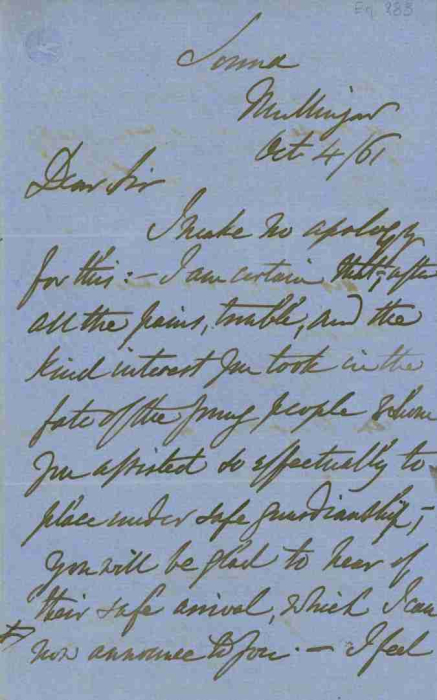 Eg 283
Sonna
Mullingar
Oct 4/61
Dear Sir
I make no apology
for this :— I am certain that, after
all the pains, trouble, and the
kind interest you took in the
fate of the young people whom
you assisted so effectually to
place under safe guardianship,—
you will be glad to hear of
their safe arrival, which I can
now announce to you. — I feel